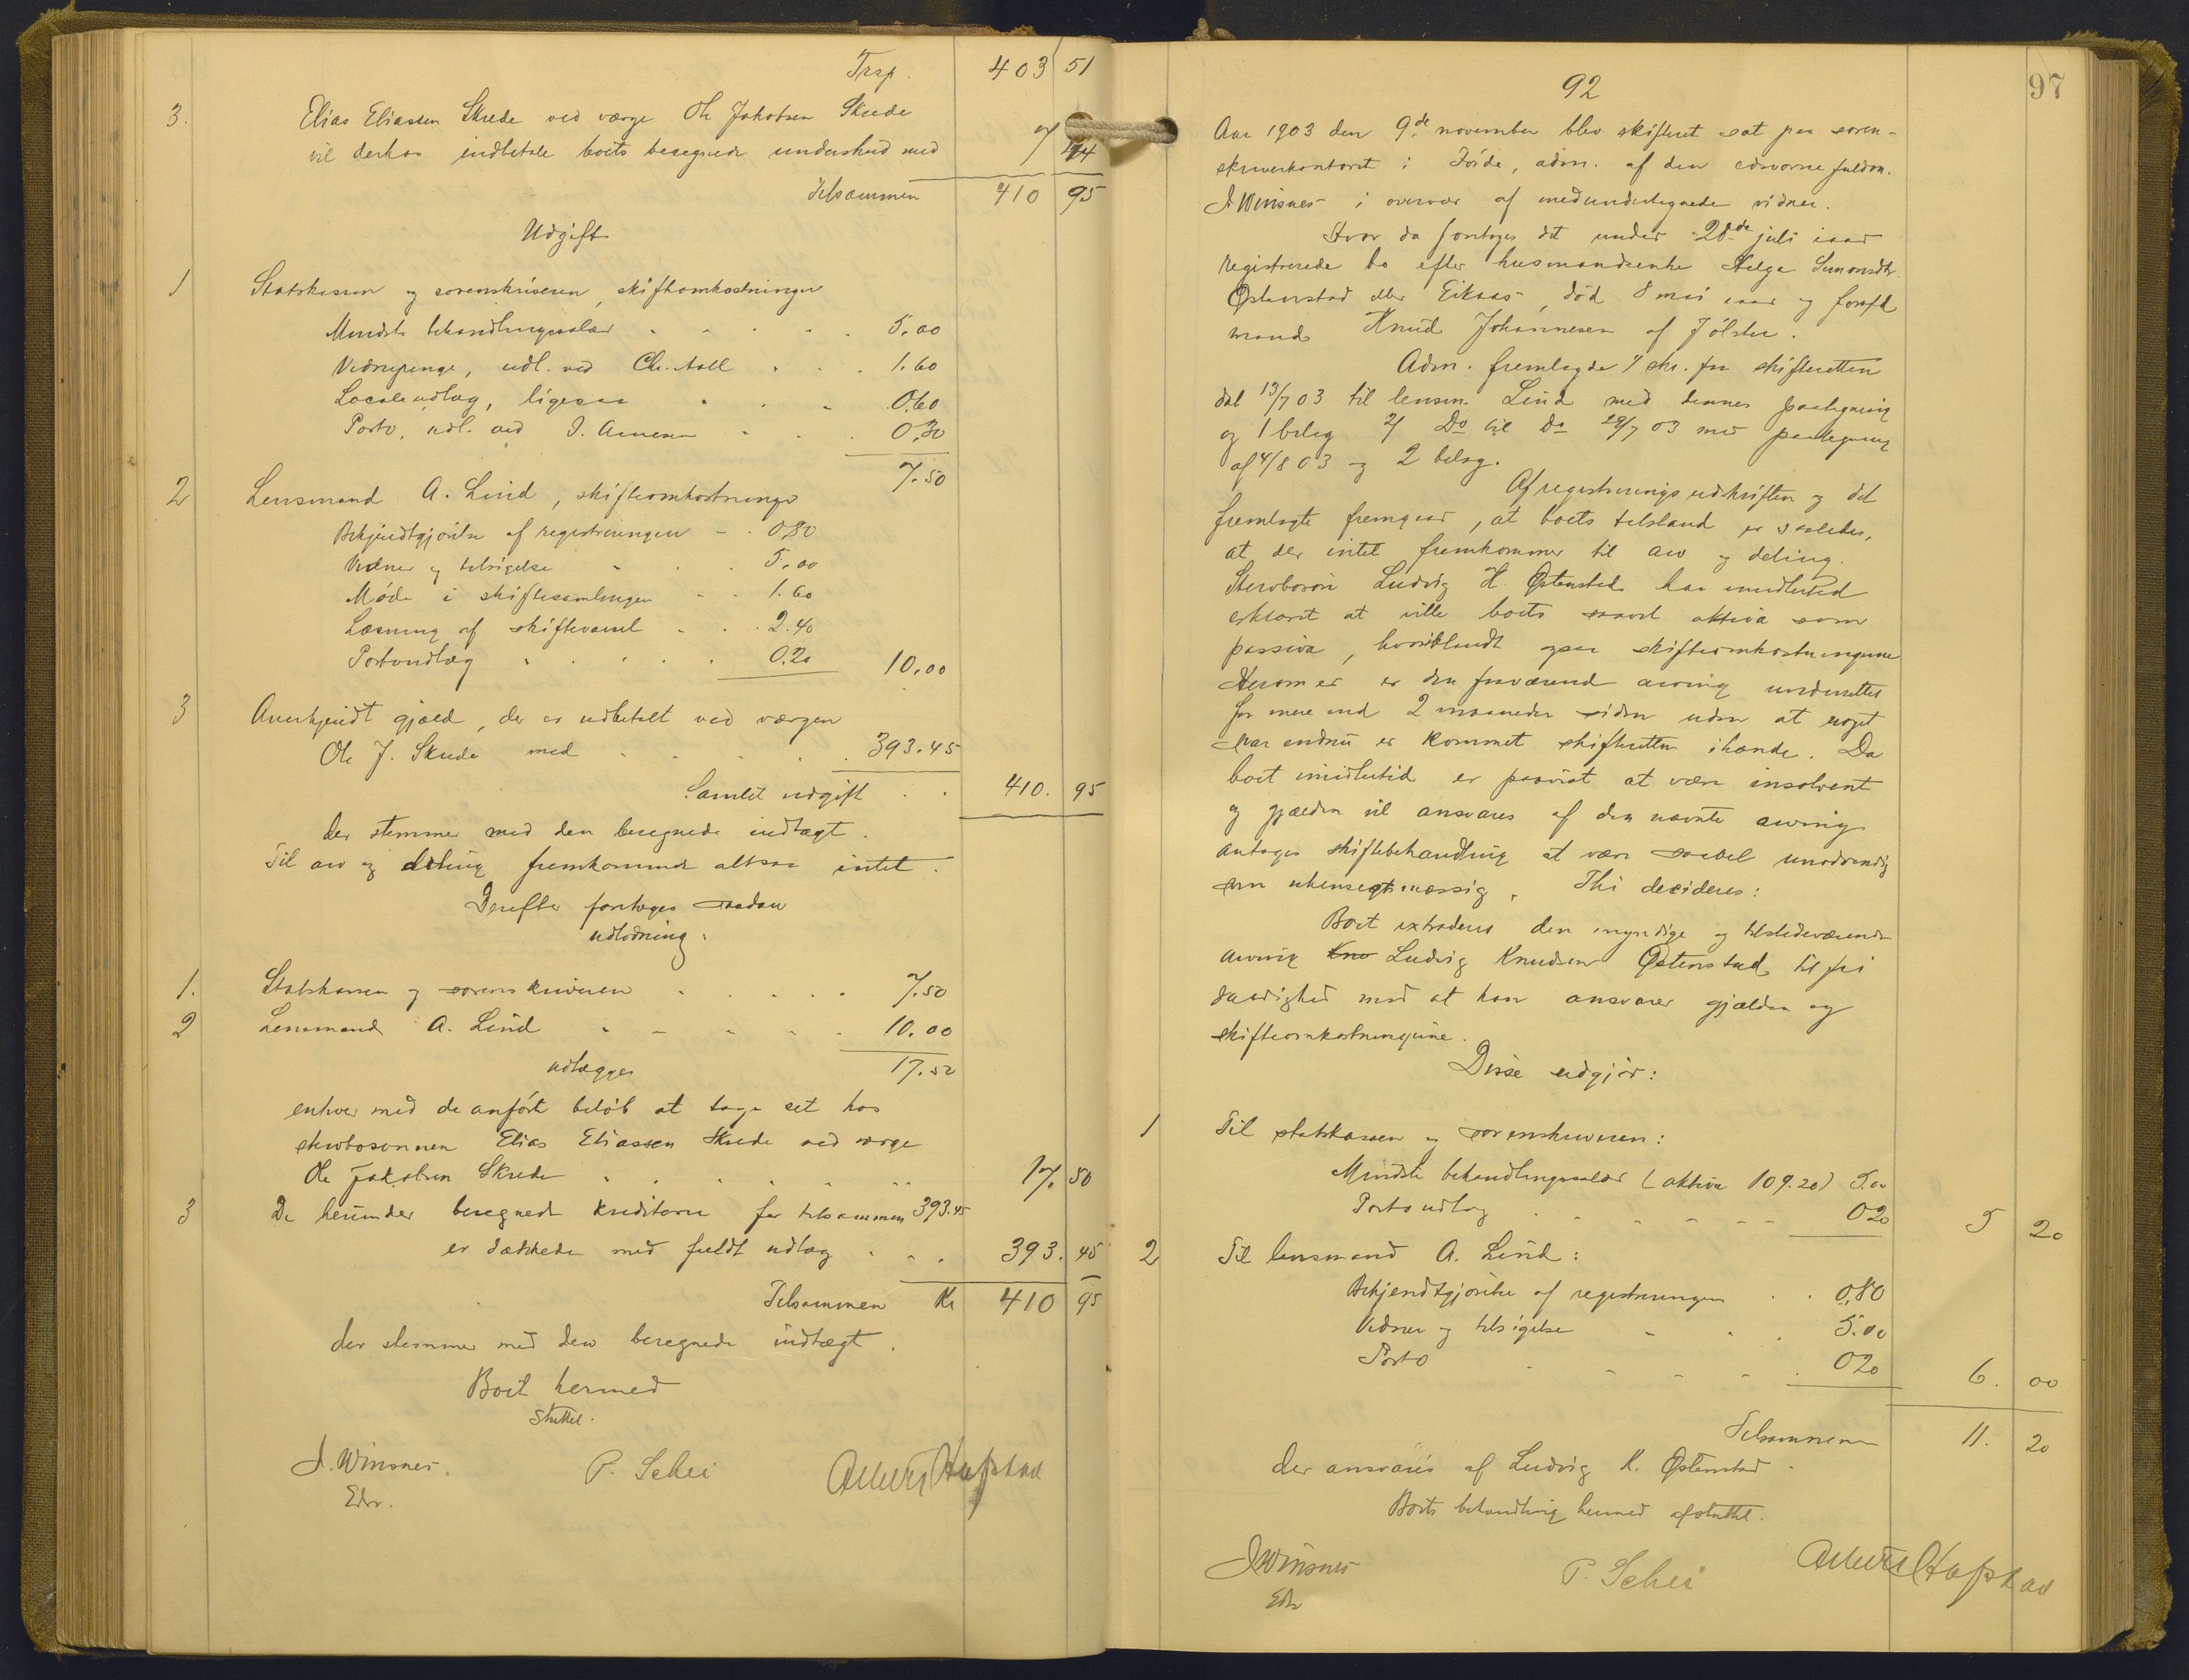 Trsp. 403 51
3. Elias Eliassen Skrede ved værge Ole Jakobsen Skrede
vil derhos indbetale boets beregnede underskud med 7 44
Tilsammen 410 95
Udgift
1 Statskassen og sorenskriveren, skifteomkostninger
Mindste behandlingssalær 5.00
Vidnepenge, udl. ved Chr. Aall 1.60
Localeudlæg, ligesaa 0.60
Porto, udl. ved I. 0.30
7.50
2 Lensmand A. Lind, skifteomkostninger
Bekjendtgjørelse af registreringen 0.80
Vidner og tilsigelse 5.00
Møde i skiftesamlingen 1.60
Læsning af skiftevarsel 2.40
Portoudlæg 0.20 10.00
3 Anerkjendt gjæld, der er udbetalt ved værgen
Ole J. Skrede med 393.45
Samlet udgift 410. 95
der stemmer med den beregnede indtægt.
Til arv og deling fremkommer altsaa intet.
Derefter foretages saadan
udlodning:
1. Statskassen og sorenskriveren 7.50
2 Lensmand A. Lind 10.00
udlægges 17.50
enhver med de anførte beløb at tage ret hos
stervbosønnen Elias Eliassen Skrede ved værge
Ole Jakobsen Skrede 17. 50
3 De herunder beregnede kreditorer for tilsammen 393.45
er dækkede med fuldt udlæg 393. 45
Tilsammen Kr 410 95
der stemmer med den beregnede indtægt.
Boet hermed
sluttet.
J. Winsnes. P. Schei Albert Hafstad
Edsv.
97
92
Aar 1903 den 9de november blev skifteret sat paa soren-
skriverkontoret i Førde, adm. af den edsvorne fuldm.
J Winsnes i overvær af medundertegnede vidner.
Hvor da foretoges det under 28de juli iaar
registrerede bo efter husmandsenke Helga Simonsdtr.
Østenstad eller Eikaas, død 8 mai iaar og forhen afd
mand Knud Johannesen af Jølster.
Adm. fremlagde 1/ skr. fra skifteretten
dat 13/7 03 til lensm. Lind med dennes paategning
og 1 bilag 2/ Do til Do 29/7 03 med paategning
af 4/8 03 og 2 bilag.
Af registreringsudskriften og det
fremlagte fremgaar, at boets tilstand er saaledes,
at der intet fremkommer til arv og deling.
Stervbosøn Ludvig K. Østenstad har imidlertid
erklæret at ville boets saavel aktiva som
passiva, hvoriblandt ogsaa skifteomkostningerne
Herom er den fraværende arving underrettet
for mere end 2 maaneder siden uden at noget
svar endnu er kommet skifteretten ihænde. Da
boet imidlertid er paavist at være insolvent
og gjælden vil ansvares af den nævnte arving
antages skiftebehandling at være saavel unødvendig
som uhensigtsmæssig. Thi decideres:
Boet extraderes den myndige og tilstedeværende
arving Kno Ludvig Knudsen Østenstad til fri
raadighed mod at han ansvarer gjælden og
skifteomkostningerne.
Disse udgjør:
1 Til statskassen og sorenskriveren:
Mindste behandlingssalær (aktiva 109.20) 5.00
Portoudlæg 0 20 5 20
2 Til lensmand A. Lind:
Bekjendtgjørelse af registreringen 0,80
Vidner og tilsigelse 5.00
Porto 0 20 6. 00
Tilsammen 11. 20
der ansvares af Ludvig K. Østenstad.
Boets behandling hermed afsluttet.
J Winsnes P. Schei Albert Hafstad
Edsv